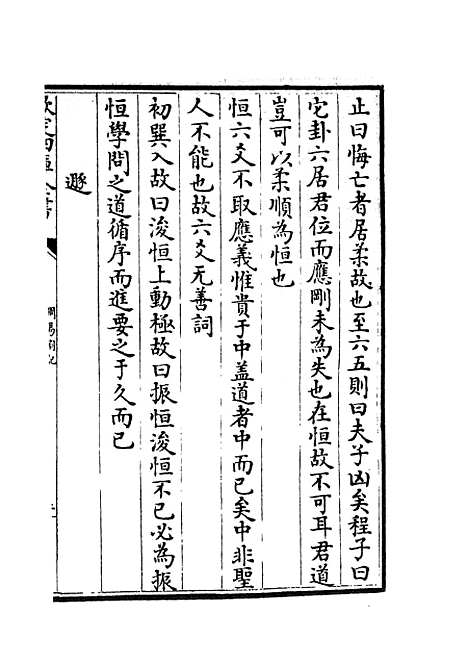 止曰悔亡者居柔故也至六五則曰夫子凶矣程子曰
它卦六居君位而應剛未為失也在恒故不可耳君道
豈可以柔順為恒也
恒六爻不取應義惟貴于中盖道者中而已矣中非聖
人不能也故六爻无善詞
初巽入故曰浚恒上動極故曰振恒浚恒不已必為振
恒學問之道循序而進要之于久而已
遯
欽定四庫全書
周易劄記